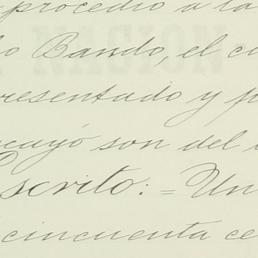 procedio a la
Bando, el
resentado y
cayó son del
scrito: = Un
cincuenta ce